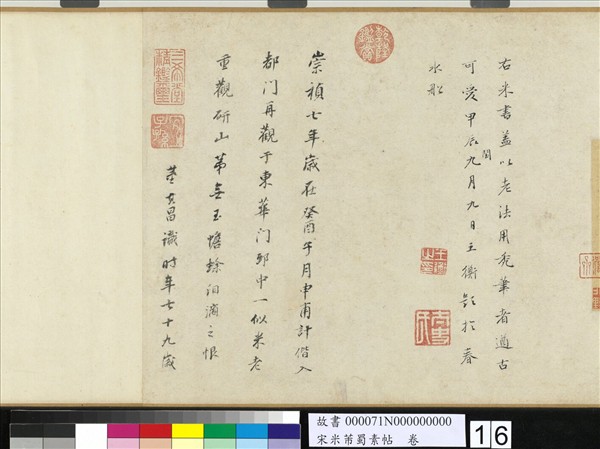 右米書蓋以老法用禿筆者遒古
可愛甲辰閏九月九日王衡題於春
水船
崇禎七年歲在癸酉子月申甫計偕入
都門再觀于東華門邸中一似米老
重觀研山第無玉蟾蜍泪滴之恨
董其昌識時年七十九歲
故書 000071N000000000
宋米芾蜀素帖 卷
16